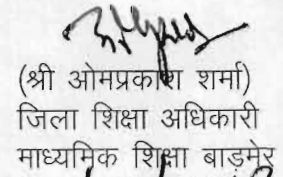 (श्री ओमप्रकाश शर्मा)
जिला शिक्षा अधिकारी
माध्यमिक शिक्षा बाड़मेर